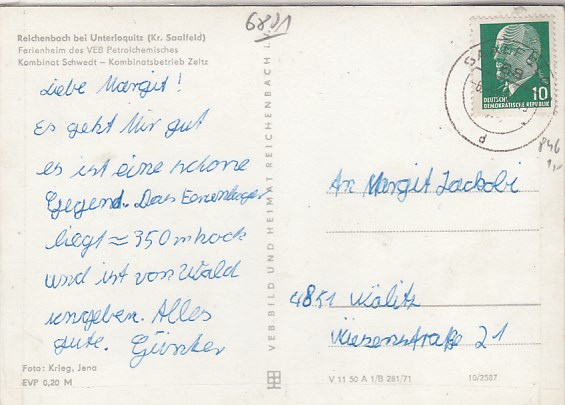 6801
Reichenbach bei Unterloquitz (Kr. Saalfeld)
Ferienheim des VEB Petrolchemisches
Kombinat Schwedt – Kombinatsbetrieb Zeitz
Liebe Margit!
Es geht Mir gut
es ist eine schöne
Gegend. Das
liegt ≈ 350 m hoch
und ist von Wald
umgeben. Alles
gute. Günter
Foto: Krieg, Jena
EVP 0,20 M
VEB BILD UND HEIMAT REICHENBACH i.
DEUTSCHE
DEMOKRATISCHE REPUBLIK
10
846
1,-
An Margit Jackobi
4851
Wiesenstraße 21
V 11 50 A 1/B 281/71
10/2587